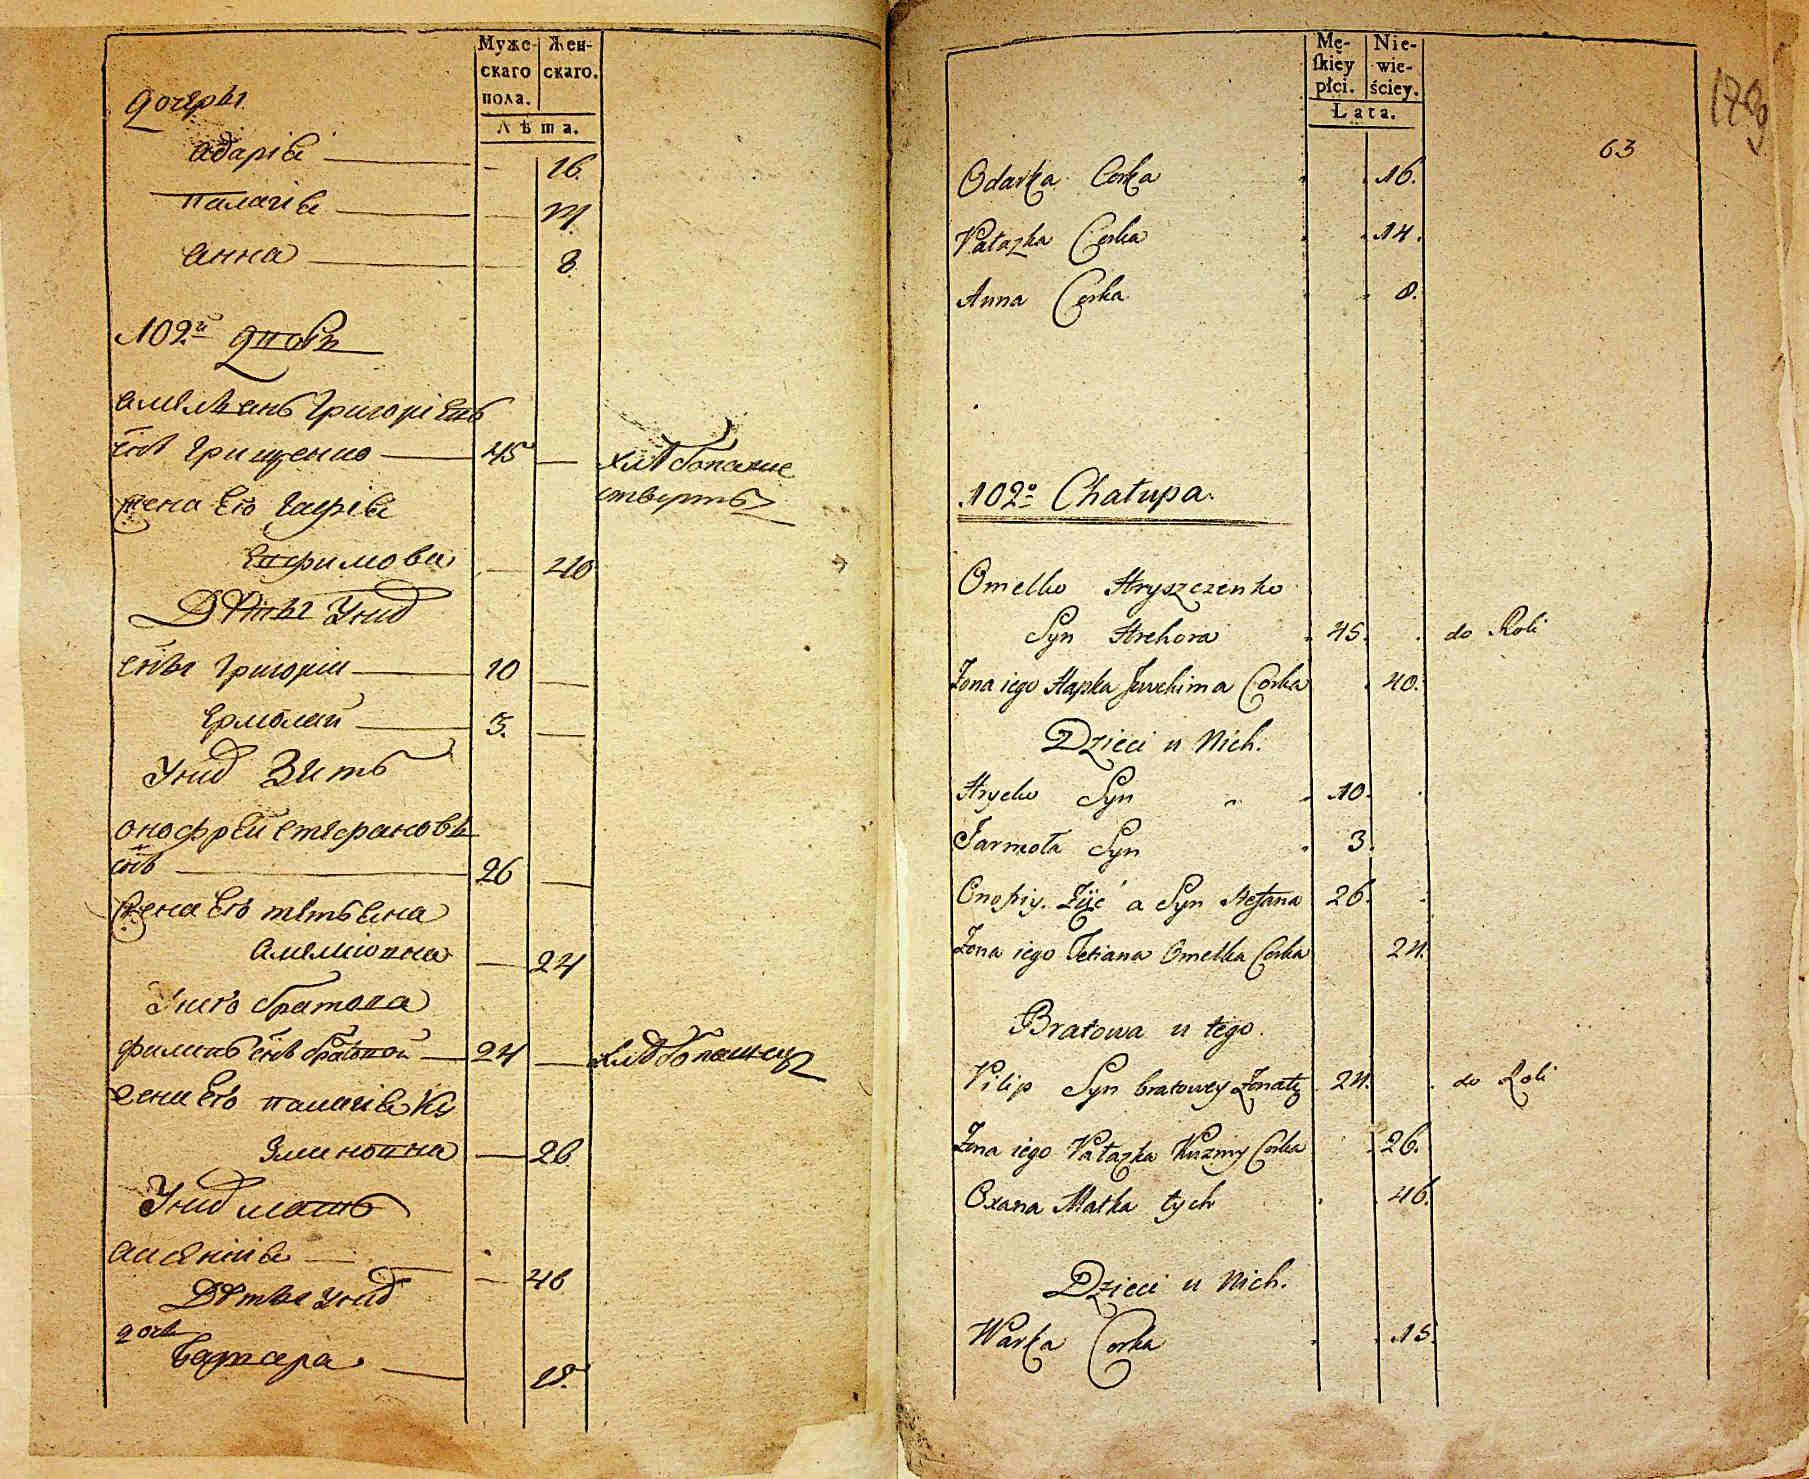 Муже-
скаго
пола.
Жен-
скаго.
Лѣта.
дочеры
адарія — 16.
палагія — 14.
анна — 8
102й двор
амельянъ григоріевъ
снъ грищенко — 45 — хлѣбопаше
ствертъ
жена его гапія
Ефимова — 40
Дѣты у них
снъы григорій — 10 —
Ермолай — 3. —
У них Зять
онофрей стефановъ
снъ — 26 —
жена его тетьяна
амелиовна — 24
У него братова
филипъ снъ братовой — 24 — хлѣбопашецъ
жена его палагія Ку
зминовна — 26
У них мать
аксенія — 46
Дѣты у них
дочь
Варвара — 15.
Mę-
ſkiéy
płci.
Nie-
wie-
ściey.
Łata.
173
63
Odarka Corka 16.
Pałazka Corka 14.
Anna Corka 8.
102o Chałupa.
Omelko Hryszczenko
Syn Hrehora 45. do Roli
Żona iego Hapka Juchima Corka 40.
Dzieci u Nich.
Hryćko Syn 10.
Jarmoła Syn 3.
Onofriy. Zięć a Syn Stefana 26.
Żona iego Tetiana Omelka Corka 24.
Bratowa u tego.
Filip Syn bratowey Żonaty 24. do Roli
Żona iego Pałazka Kuzmy Corka 26.
Oxana Matka tych 46.
Dzieci u Nich.
Warka Corka 15.